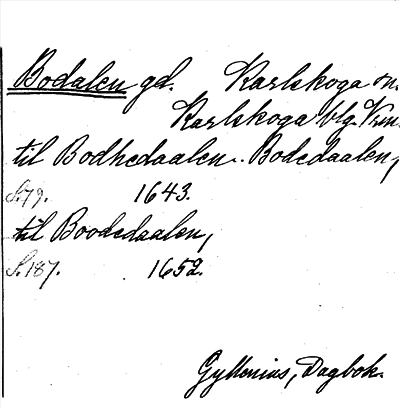 Bodalen gd. Karlskoga sn.
Karlskoga blg. Vrml.
til Bodhedaalen.. Bodedaalen,
S.79. 1643.
til Boodedaalen,
S.187. 1652.
Gyllenius, Dagbok.